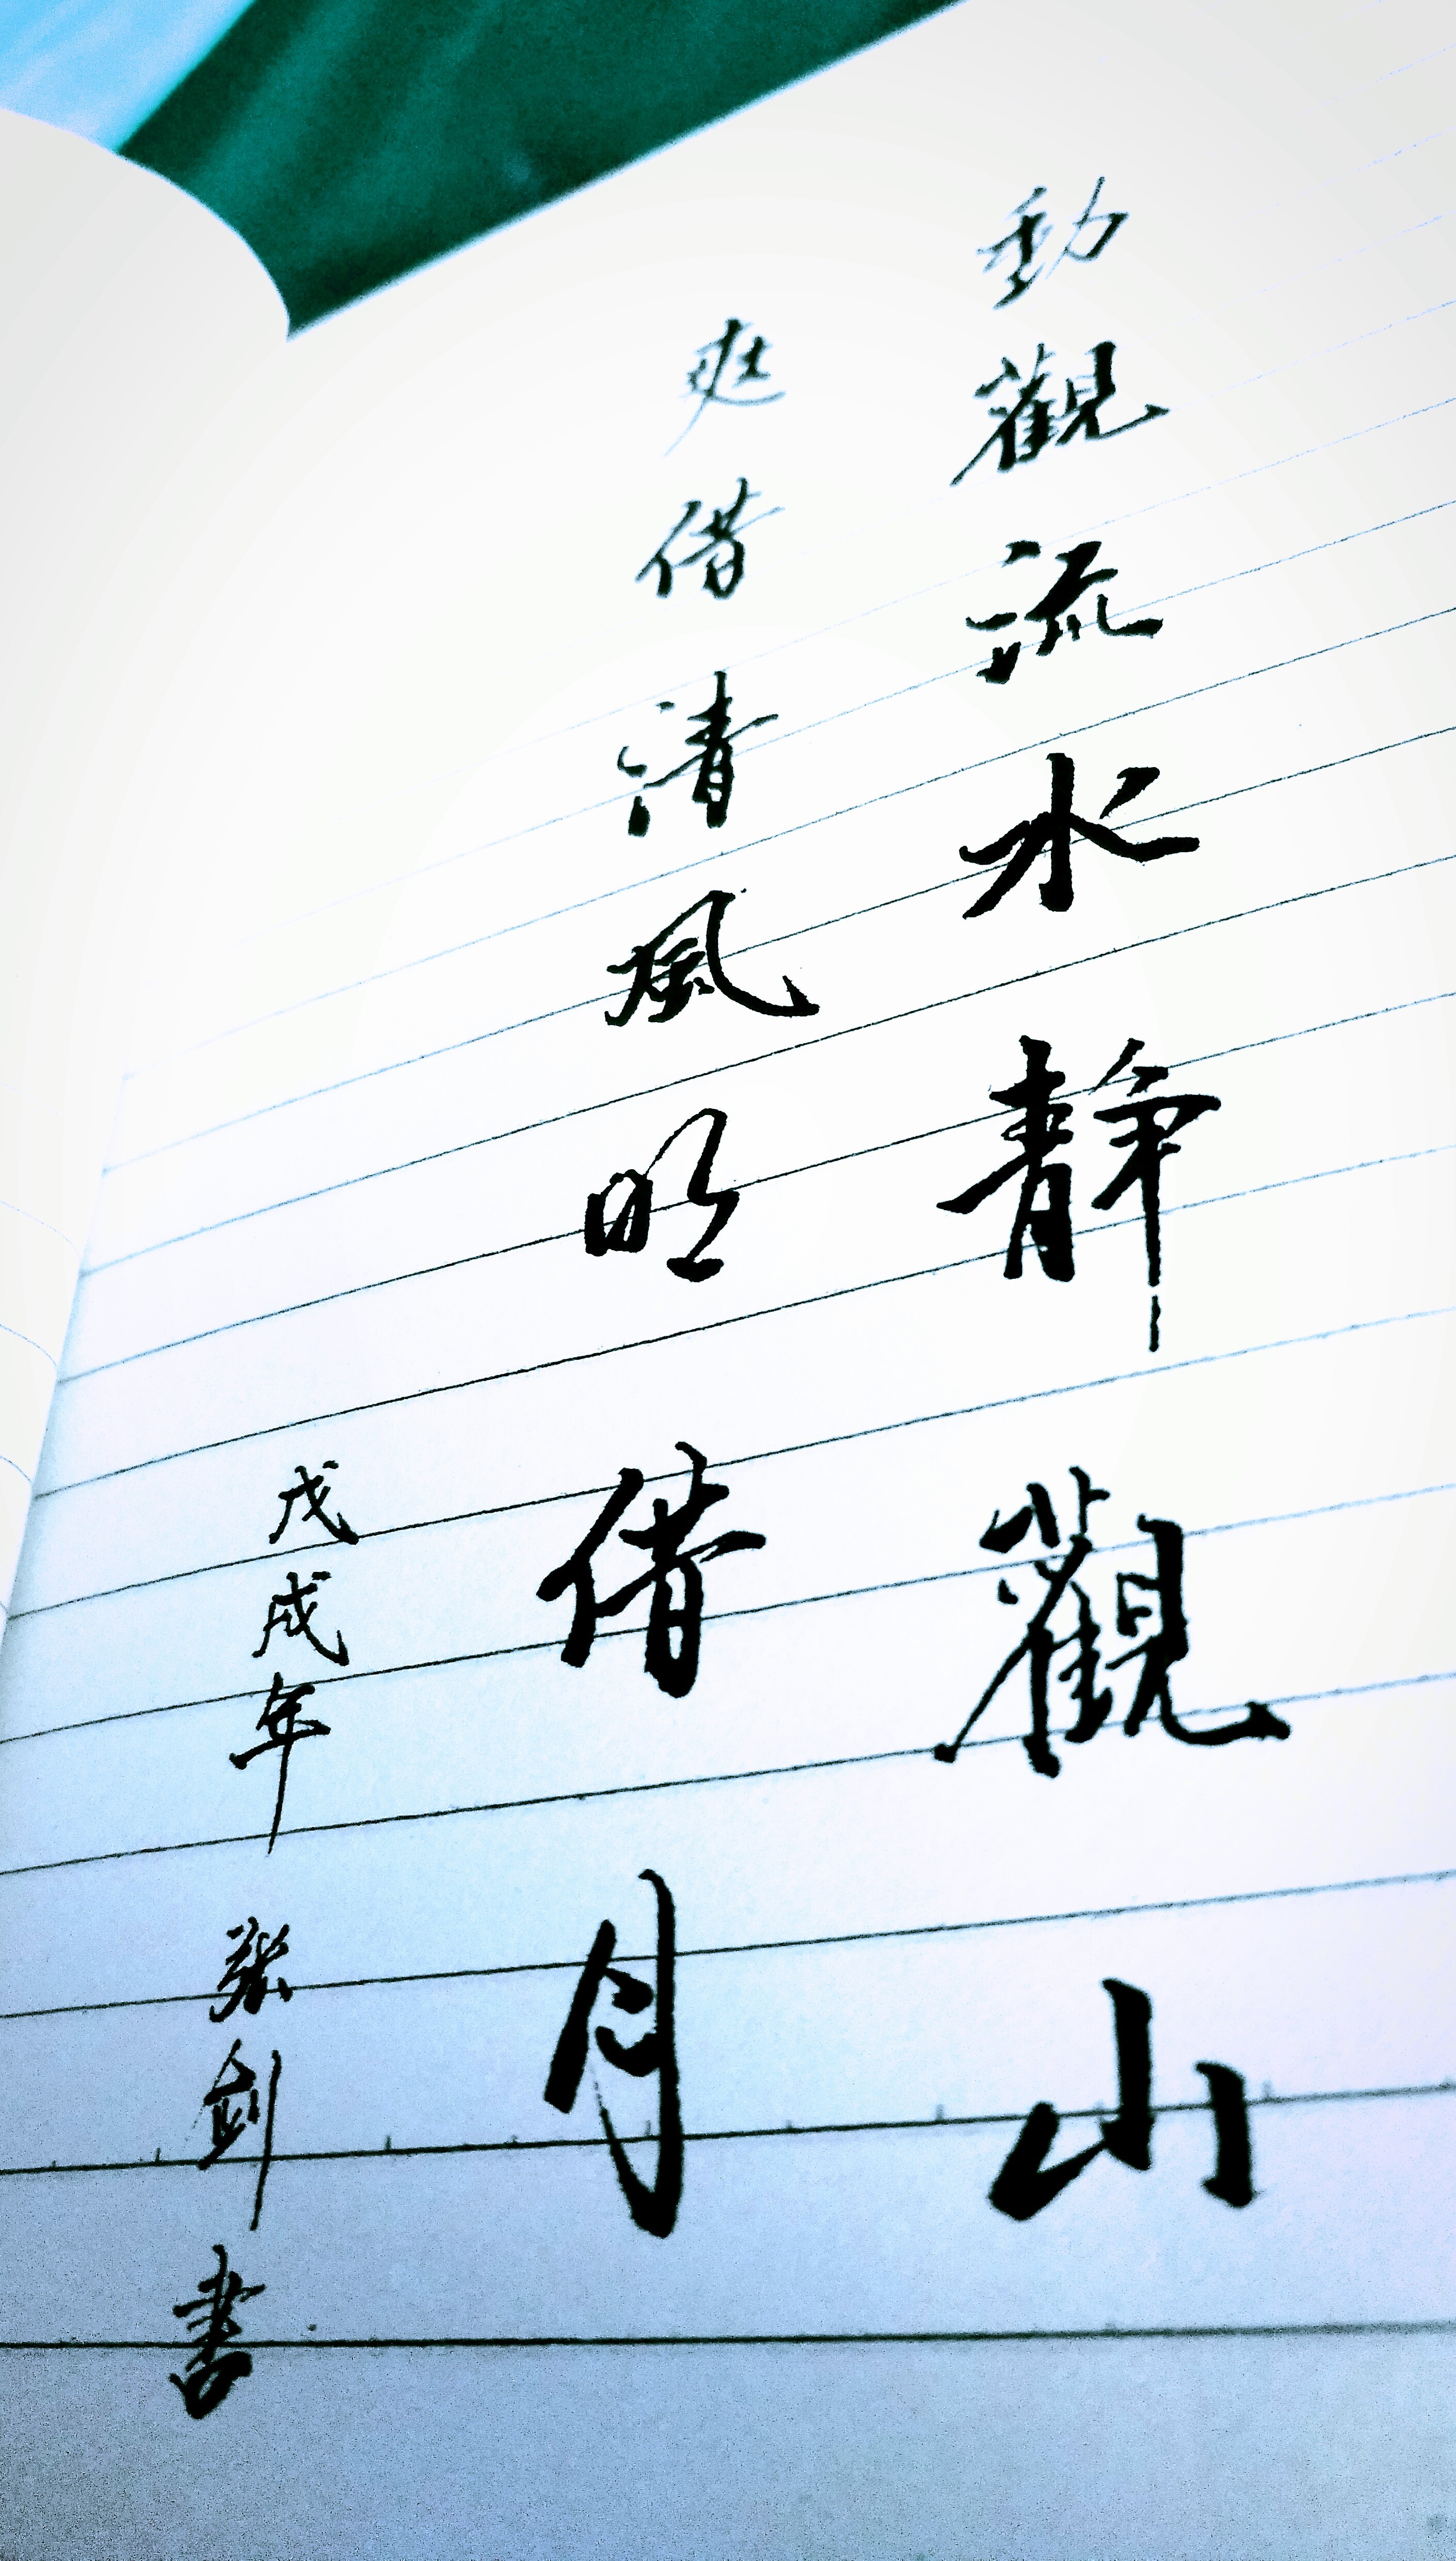 動觀流水静觀山
爽借清風明借月
戊戌年 張劍書